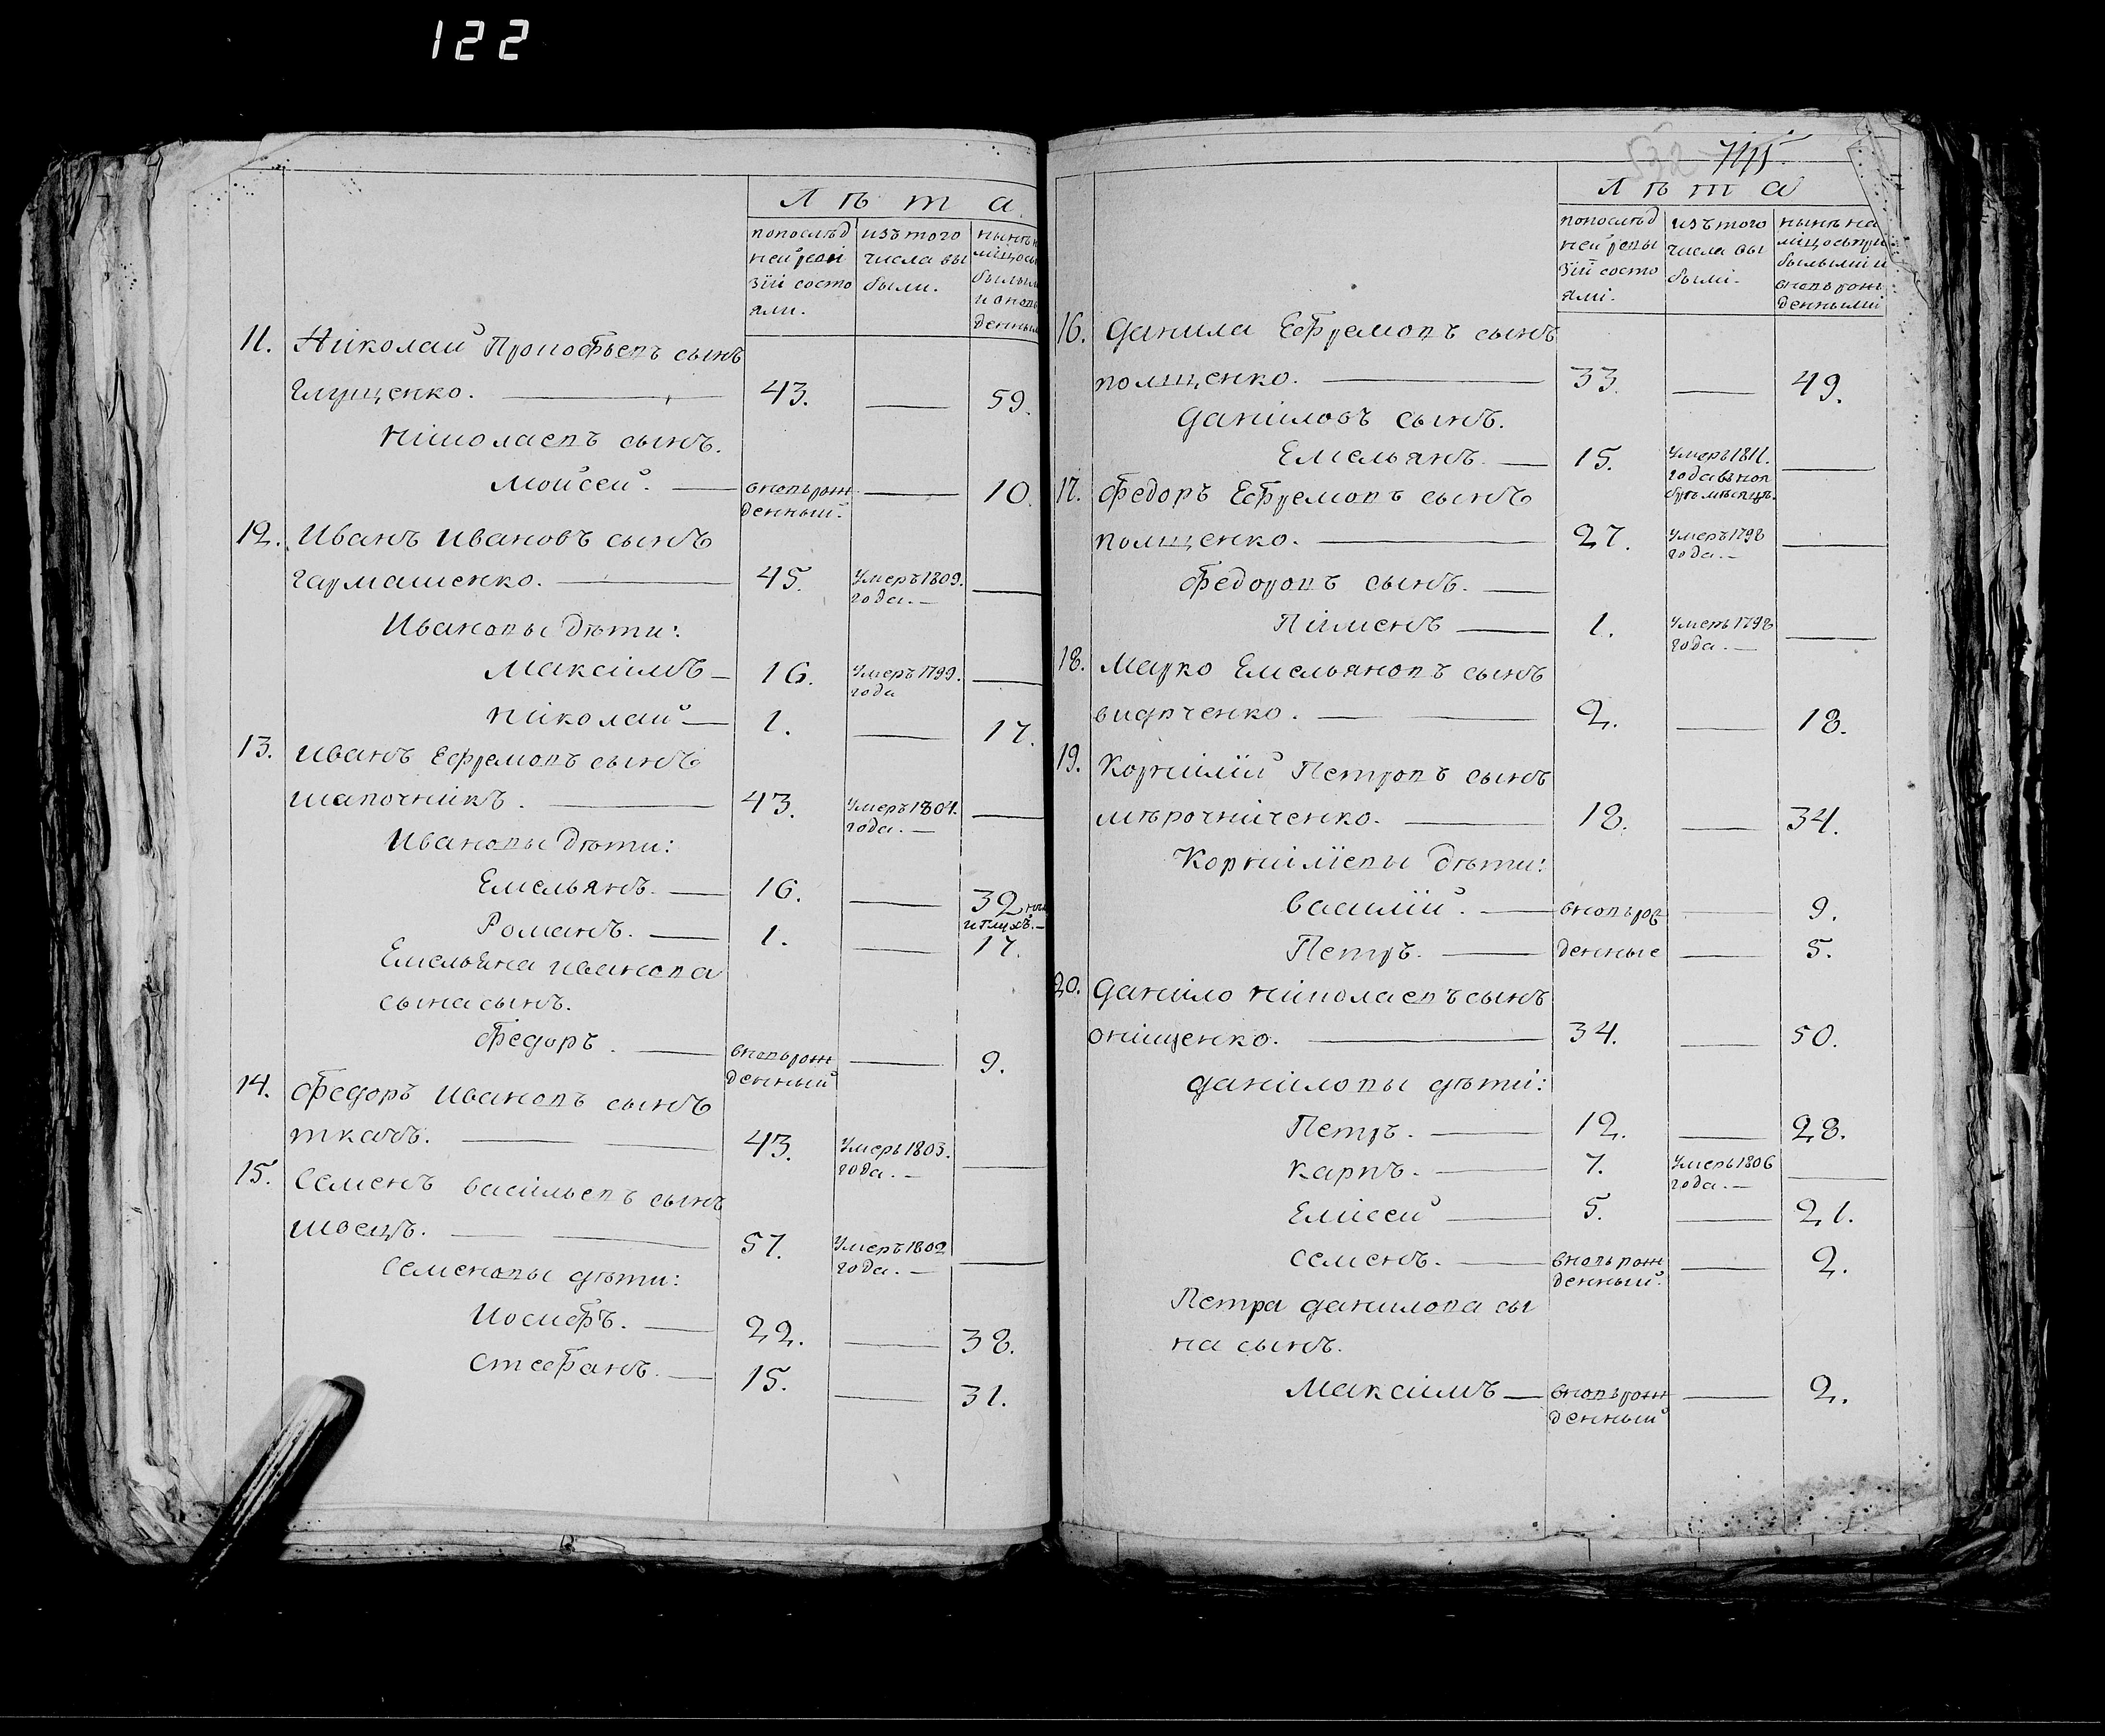 122
Лѣта.
попослѣд
ней реви
зіи состо
яли.
изътого
числа вы
были.
11. Николай Прокофьевъ сынъ
Глущенко. 43. — 59.
Николаевъ сынъ.
Мойсей. — вновьрож — 10.
денный.
12. Иванъ Ивановъ сынъ
гармашенко. — 45. Умеръ 1809. —
года. —
Ивановы дѣти:
Максимъ — 16. Умеръ 1799. —
года
Николай — 1. — 17.
13. Иванъ Ефремовъ сынъ
шапочникъ. — 43. Умеръ 1804. —
года. —
Ивановы дѣти:
Емельянъ. — 16. — 32
иглухъ. —
Романъ. — 1. — 17.
Емельяна иванова
сына сынъ.
Федоръ. — вновьрож — 9.
денный
14. Федоръ Ивановъ сынъ
ткачъ. — 43. Умеръ 1803. —
года. —
15. Семенъ васильевъ сынъ
швецъ. — 57. Умеръ 1802 —
года. —
Семеновы дѣти:
Иосифъ. — 22. — 38.
Стефанъ. — 15. — 31.
532 745
Лѣта
попослѣд
ней ревы
зіи состо
яли.
изътого
числа вы
были.
нынѣ на
лицо съпри
былыми и
вновь рож
денными
16. Данила Ефремовъ сынъ
полщенко. — 33. — 49.
Даниловъ сынъ.
Емельянъ. — 15. Умеръ 1811. —
года въноя
брѣ мѣсяцѣ.
17. Федоръ Ефремовъ сынъ
полщенко. — 27. Умеръ 1798 —
года. —
Федоровъ сынъ. —
Пименъ — 1. Умеръ 1798 —
года. —
18. Марко Емельяновъ сынъ
2. — 18.
19. Корнилій Петровъ сынъ
мѣрочниченко. — 18. — 34.
Корниліевы дѣти:
василій. — вновьрож — 9.
Петръ. — денные — 5.
20. Данило николаевъ сынъ
онищенко. — 34. — 50.
даниловы дѣти:
Петръ. — 12. — 28.
карпъ. — 7. Умеръ 1806 —
года. —
Елисей — 5. — 21.
семенъ. — вновьрож — 2.
денный.
Петра данилова сы
на сынъ.
Максимъ — вновьрож — 2.
денный